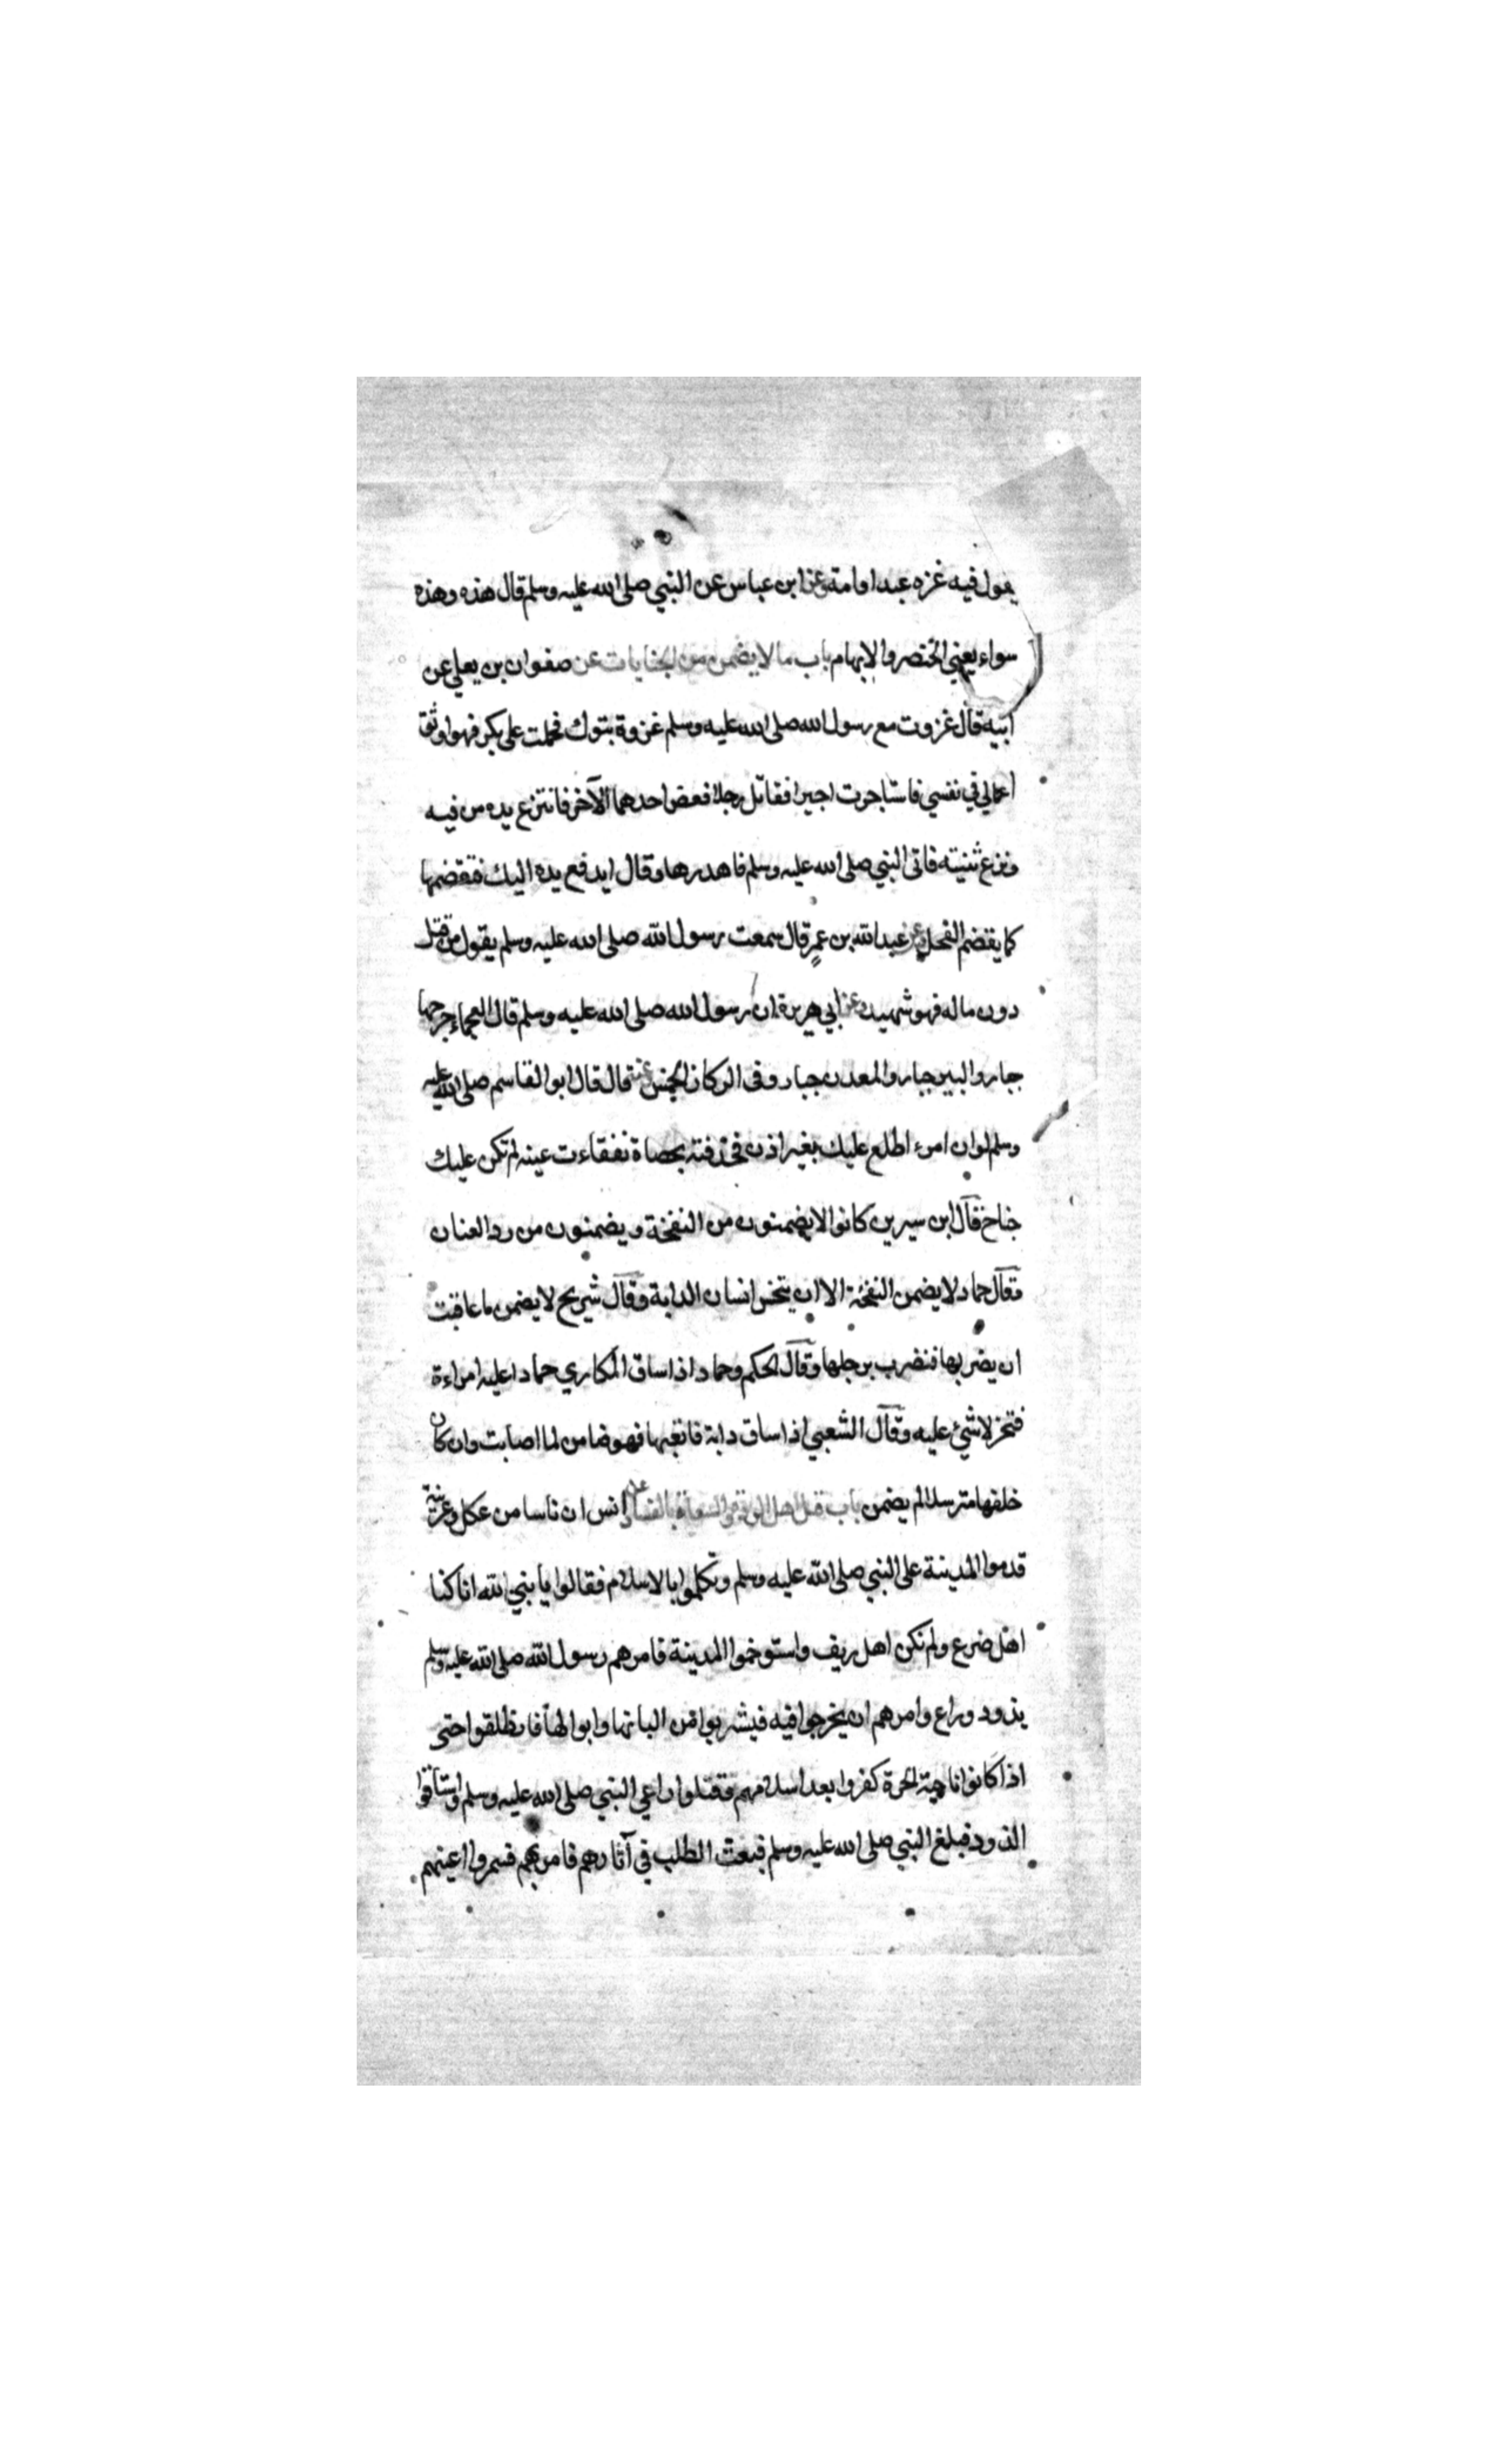 يقول فيه غزه عبد او امة وعن ابن عباس عن النبي صلى الله عليه وسلم قال هذه وهذه
سواء يعني الخنصر والابهام باب ما لا يضمن من الجنايات عن صفوان بن يعلى عن
ابيه قال غزوت مع رسول الله صلى الله عليه وسلم غزوة بتوك فحملت على بكر فهو اوثق
اعمالي في نفسي فاستاجرت اجيرا فقاتل رجلا فعض احدهما الآخر فانتزع يده من فيه
ونزع ثنيته فاتى النبي صلى الله عليه وسلم فاهدرها وقال ايدفع يده اليك فتقضمها
كما يقضم الفحل وعن عبد الله بن عمر قال سمعت رسول الله صلى الله عليه وسلم يقول من قتل
دون ماله فهو شهيد وعن ابي هريرة ان رسول الله صلى الله عليه وسلم قال العجماء جرحها
جبار والبير جبار والمعدن جبار وفى الركاز الخمس وعنه قال قال ابو القاسم صلى الله عليه
وسلم لو ان امرء اطلع عليك بغير اذن فخذفته بحصاة نفقاءت عينه لم تكن عليك
جناح قال ابن سيرين كانوا لا يضمنون من النفخة ويضمنون من رد العنان
وقال حماد لا يضمن النفخة الا ان ينخس انسان الدابة وقال شريح لا يضمن ما عاقبت
ان يضربها فنضرب برجلها وقال الحكم وحماد اذا ساق المكاري حمادا عليه امراءة
فتخر لا شئ عليه وقال الشعبي اذا ساق دابة فاتعبها فهو ضامن لما اصابت وان كان
خلفها مترسلا لم يضمن باب قتل اهل الردة والسعاة بالفساد عن انس ان ناسا من عكل وعرينة
قدموا المدينة على النبي صلى الله عليه وسلم وتكلموا بالاسلام فقالوا يا نبي الله انا كنا
اهل ضرع ولم نكن اهل ريف واستوخموا المدينة فامرهم رسول الله صلى الله عليه وسلم
يذود وراع وامرهم ان يخرجوا فيه فيشربوا من البانها وابوالها فانطلقوا حتى
اذا كانوا ناحية الحرة كفروا بعد اسلامهم وقتلوا راعي النبي صلى الله عليه وسلم واستاقوا
الذود فبلغ النبي صلى الله عليه وسلم فبعث الطلب في آثارهم فامر بهم فسمروا اعينهم